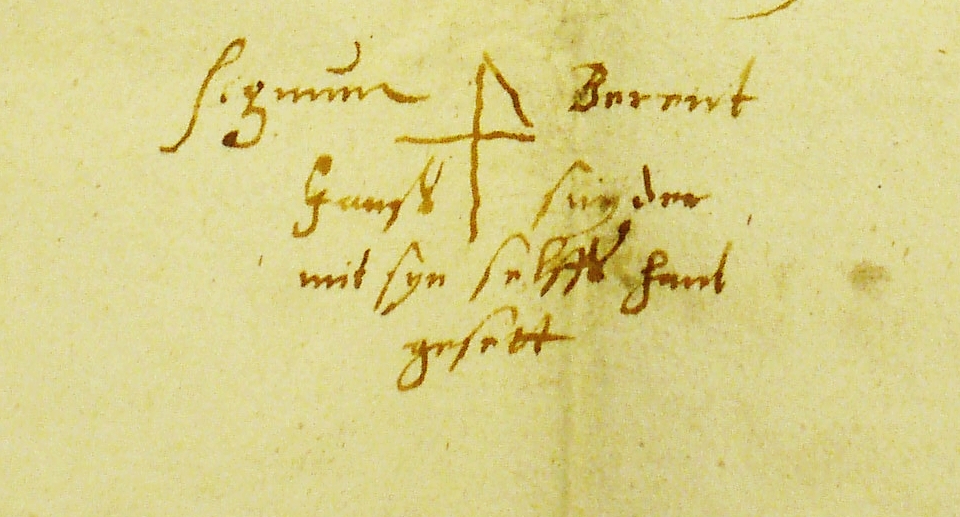 signum Berent
Hanss snyder
mit syn selffs hant
gesett